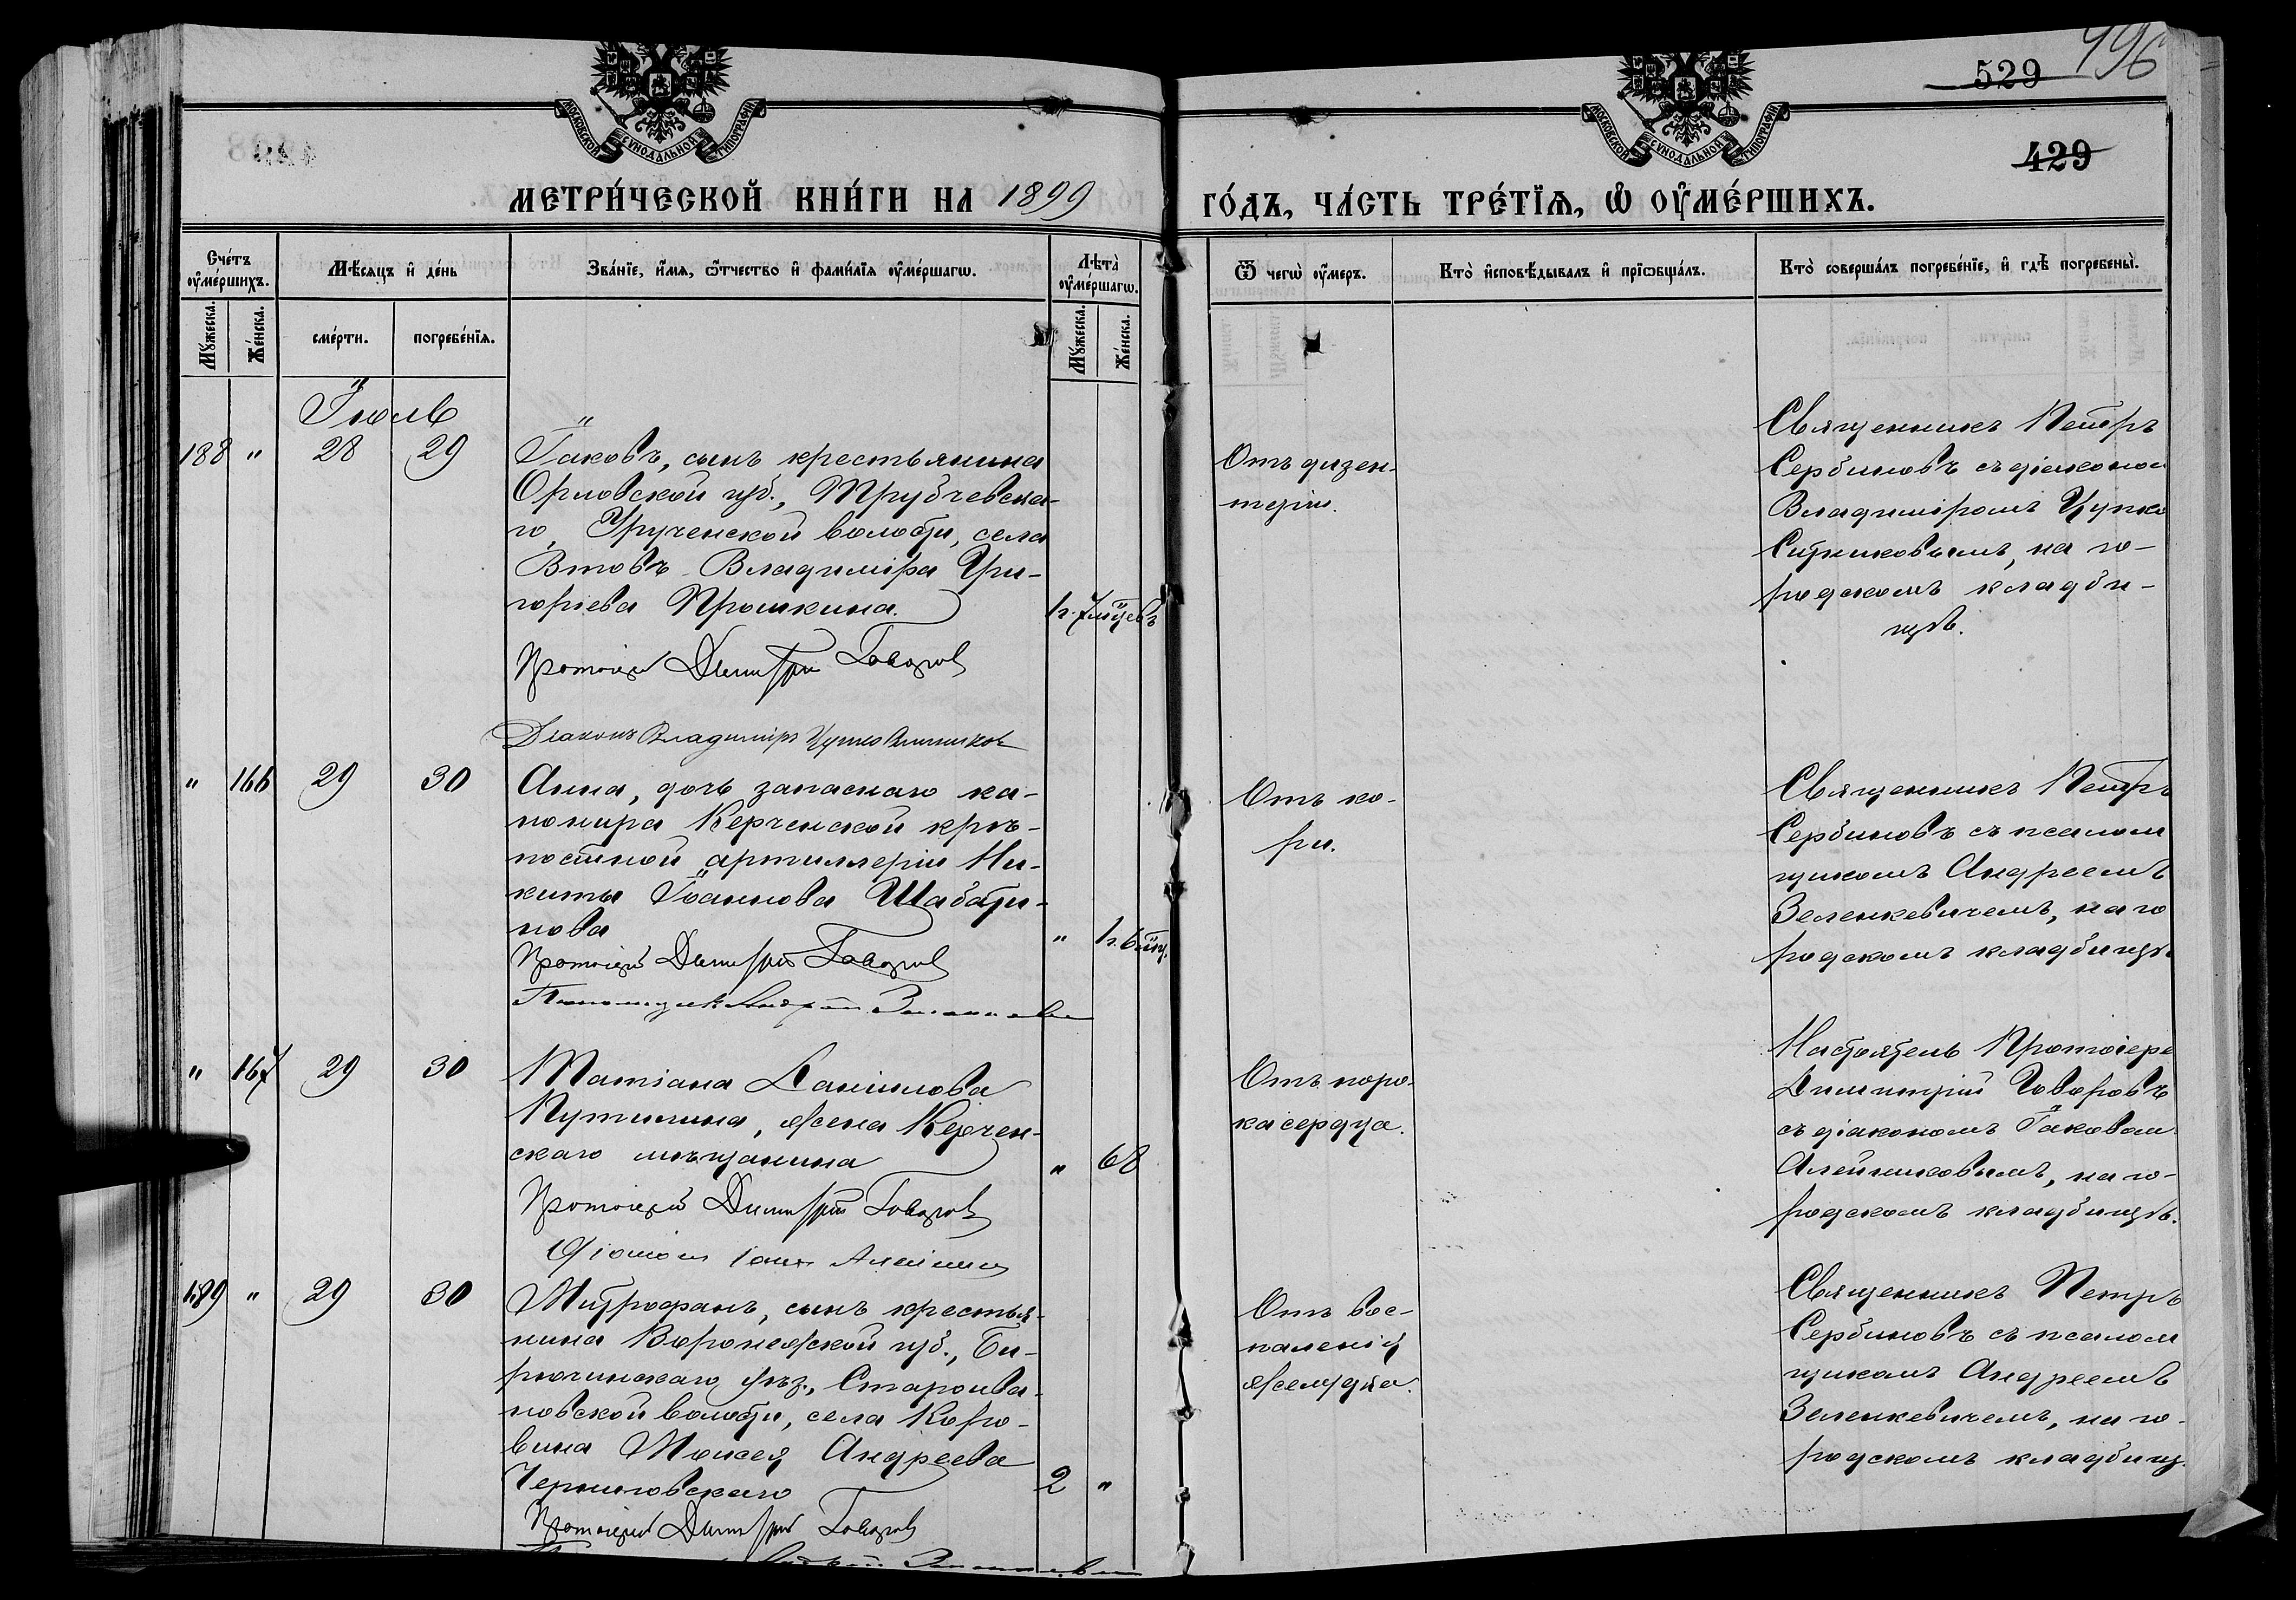 496
529
429
МОСКОВСКОЙ СУНОДАЛЬНОЙ ТИПОГРАФІИ
МОСКОВСКОЙ СУНОДАЛЬНОЙ ТИПОГРАФІИ
МЕТРИ́ЧЕСКОЙ КНИ́ГИ НА 1899
ГО́ДЪ, ЧА́СТЬ ТРЕ́ТІѦ, Ѡ҆ ОУ҆МЕ́РШИХЪ.
Сче́тъ оу҆ме́ршихъ.
Мꙋ́жеска.
Же́нска.
Мѣ́сяцъ и҆ де́нь
сме́рти.
погребе́нїѧ.
Зва́нїе, и҆́мѧ, ѻ҆́тчество и҆ фами́лїѧ оу҆ме́ршагѡ.
Лѣта̀ оу҆ме́ршагѡ.
Мꙋ́жеска.
Же́нска.
Ѿ чегѡ̀ оу҆́меръ.
Кто̀ и҆сповѣ́дывалъ и҆ прїѡбща́лъ.
Кто̀ соверша́лъ погребе́нїе, и҆ гдѣ̀ погребены̀.
Іюль
188 " 28 29
Іаковъ, сынъ крестьянина
Орловской губ., Трубчевска-
го, Урученской волости, села
Втовъ Владиміра Гри-
горіева Прошкина.
1 г. 7 мѣцевъ
Протоіерей Димитрій Говоровъ
Діаконъ Владиміръ Цупко Ситниковъ
Отъ дизен-
теріи.
Священникъ Петръ
Сербиновъ съ діакономъ
Владиміромъ Цупко
Ситниковымъ, на го-
родскомъ кладби-
щѣ.
" 166 29 30
Анна, дочь запаснаго ка-
нонира Керченской крѣ-
постной артиллеріи Ни-
киты Іоаннова Шабати-
нова
" 1 г. 6 мѣц.
Протоіерей Димитрій Говоровъ
Псаломщикъ Андрей Зеленкевич
Отъ ко-
ри.
Священникъ Петръ
Сербиновъ съ псалом
щикомъ Андреемъ
Зеленкевичемъ, на го
родскомъ кладбищѣ
" 167 29 30
Татіана Даніилова
Путилина, жена Керчен-
скаго мѣщанина
" 68
Протоіерей Димитрій Говоровъ
Діаконъ Іаковъ Алейниковъ
Отъ поро-
ка сердца.
Настоятель Протоіерей
Димитрій Говоровъ
съ діакономъ Іаковом
Алейниковымъ, на го-
родскомъ кладбищѣ.
189 " 29 30
Митрофанъ, сынъ крестья-
нина Воронежской губ., Би-
рюченскаго уѣз., Староива-
новской волости, села Коро-
вина Моисея Андреева
Черниговскаго
2 "
Протоіерей Димитрій Говоровъ
Отъ вос-
паленія
желудка.
Священникъ Петръ
Сербиновъ съ псалом
щикомъ Андреемъ
Зеленкевичемъ, на го-
родскомъ кладбищ.